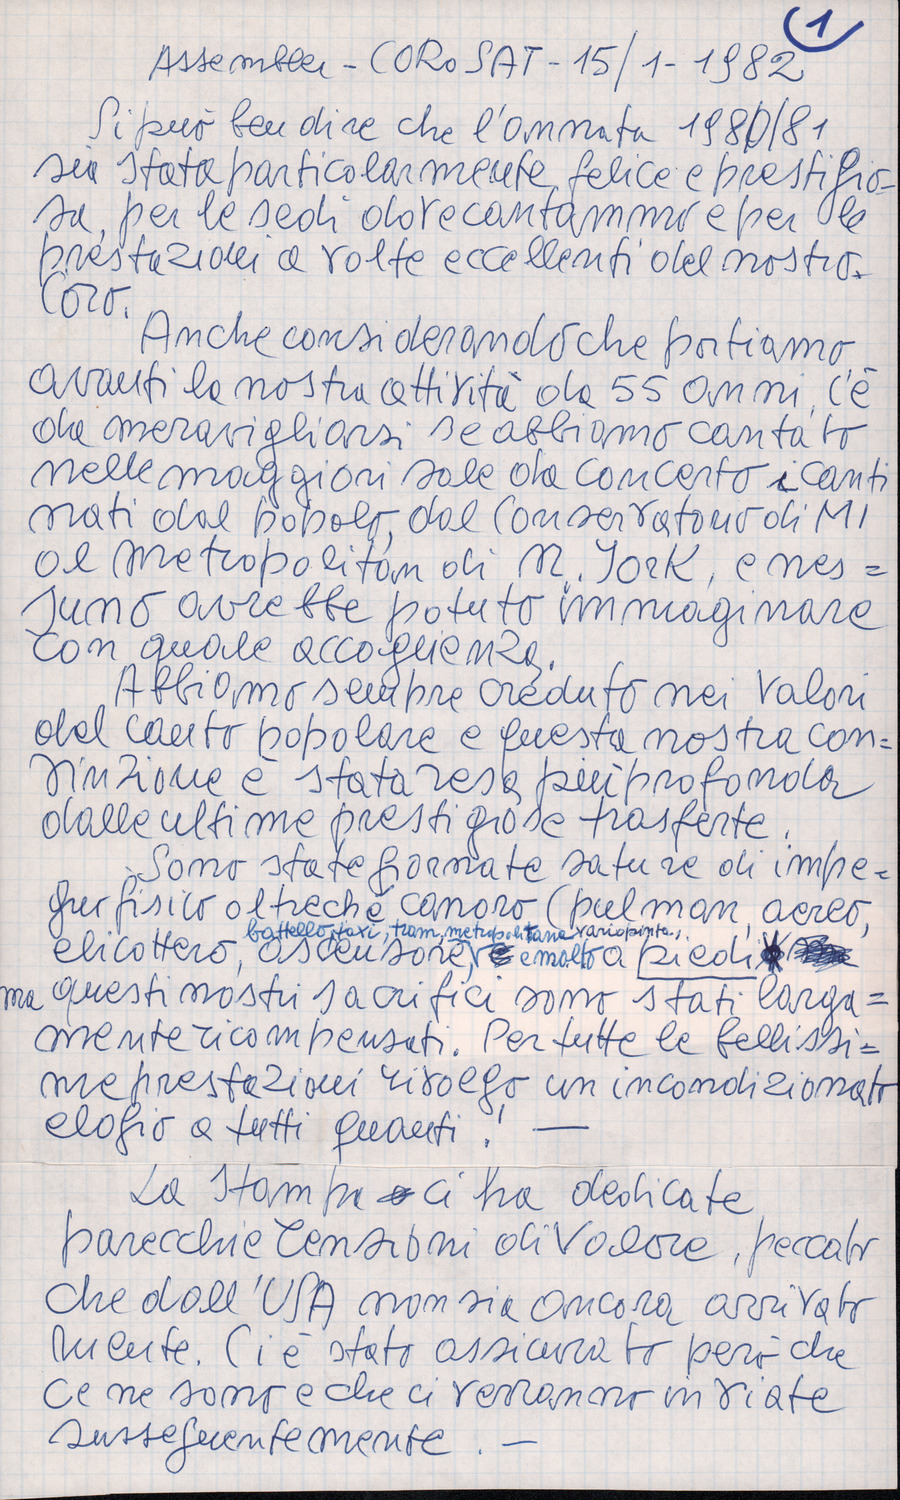 1
Assemblea - CORO SAT - 15/1-1982
Si può ben dire che l'annata 1980/81
sia stata particolarmente felice e prestigio-
sa, per le sedi dove cantammo e per le
prestazioni a volte eccellenti del nostro
Coro.
Anche considerando che portiamo
avanti la nostra attività da 55 anni, c'è
da meravigliarsi se abbiamo cantato
nelle maggiori sale da concerto i canti
nati dal popolo, dal Conservatorio di MI
al Metropolitan di N. York, e nes=
suno avrebbe potuto immaginare
con quale accoglienza.
Abbiamo sempre creduto nei valori
del canto popolare e questa nostra con=
vinzione è stata resa più profonda
dalle ultime prestigiose trasferte.
Sono state giornate sature di impe=
gni fisico oltreché canoro (pulman, aereo,
battello, taxi, tram, metropolitana variopinta,
elicottero, ascensore, e molto a piedi
ma questi nostri sacrifici sono stati larga=
mente ricompensati. Per tutte le bellissi=
me prestazioni rivolgo un incondizionato
elogio a tutti quanti! —
La Stampa ci ha dedicate
parecchie censioni di valore, peccato
che dall'USA non sia ancora arrivato
niente. Ci è stato assicurato però che
ce ne sono e che ci verranno inviate
susseguentemente. —